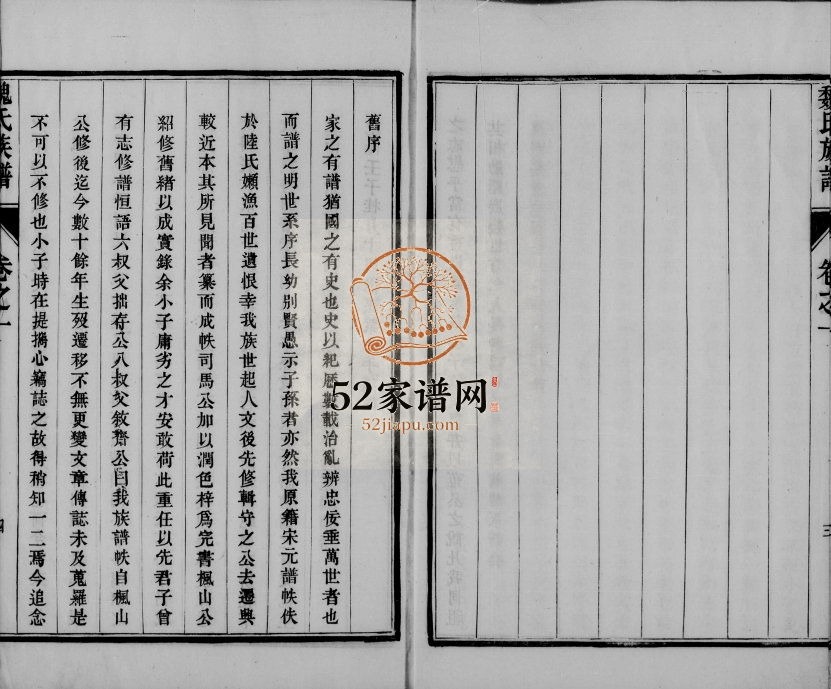 魏氏族譜
卷之一
三
舊序
家之有譜猶國之有史也史以紀歷數載治亂辨忠佞垂萬世者也
而譜之明世系序長幼別賢愚示子孫者亦然我原籍宋元譜帙佚
於陸氏嬾漁百世遺恨幸我族世起人文後先修輯守之公去遷輿
較近本其所見聞者纂而成帙司馬公加以潤色梓爲完書楓山公
紹修舊緒以成實錄余小子庸劣之才安敢荷此重任以先君子曾
有志修譜恒語六叔父拙存公八叔父敘齋公曰我族譜帙自楓山
公修後迄今數十餘年生歿遷移不無更變文章傳誌未及蒐羅是
不可以不修也小子時在提攜心竊誌之故得稍知一二焉今追念
魏氏族譜
卷之一
四
52家谱网
52jiapu.com